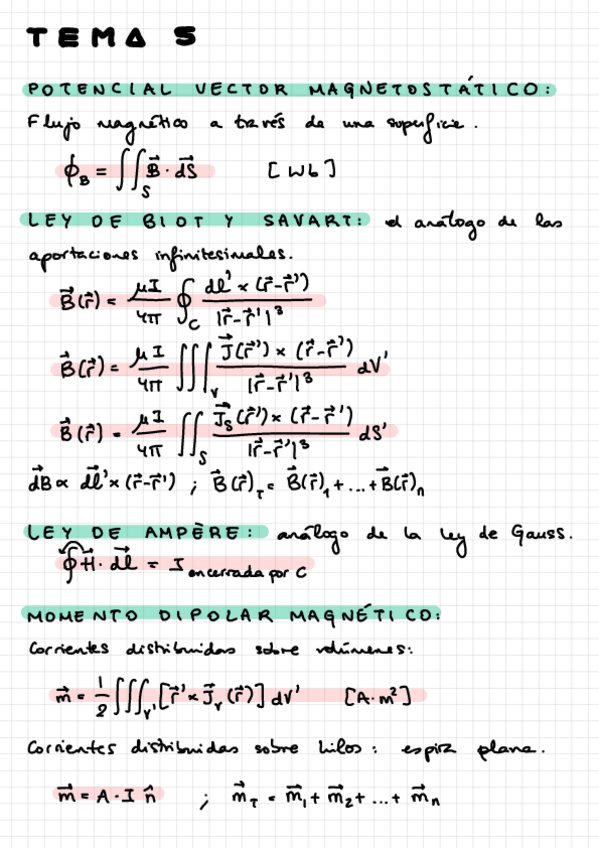 TEMA 5
POTENCIAL VECTOR MAGNETOSTÁTICO:
Flujo magnético a través de una superficie.
ϕ_B = ∬_S B⃗ · dS⃗ [Wb]
LEY DE BIOT Y SAVART: el análogo de las
aportaciones infinitesimales.
B⃗(r⃗) = μI/4π ∮_C dl⃗' × (r⃗-r⃗')/|r⃗-r⃗'|³
B⃗(r⃗) = μI/4π ∭_V J⃗(r⃗') × (r⃗-r⃗')/|r⃗-r⃗'|³ dV'
B⃗(r⃗) = μI/4π ∬_S J⃗_S(r⃗') × (r⃗-r⃗')/|r⃗-r⃗'|³ dS'
dB⃗ ∝ dl⃗' × (r⃗-r⃗') ; B⃗(r⃗)_T = B⃗(r⃗)_1 + ... + B⃗(r⃗)_n
LEY DE AMPÈRE: análogo de la ley de Gauss.
∮H⃗ · dl⃗ = I encerrada por C
MOMENTO DIPOLAR MAGNÉTICO:
Corrientes distribuidas sobre volúmenes:
m⃗ = 1/2 ∭_V' [r⃗' × J⃗_V(r⃗)] dV' [A·m²]
Corrientes distribuidas sobre hilos: espira plana.
m⃗ = A · I n̂ ; m⃗_T = m⃗_1 + m⃗_2 + ... + m⃗_n